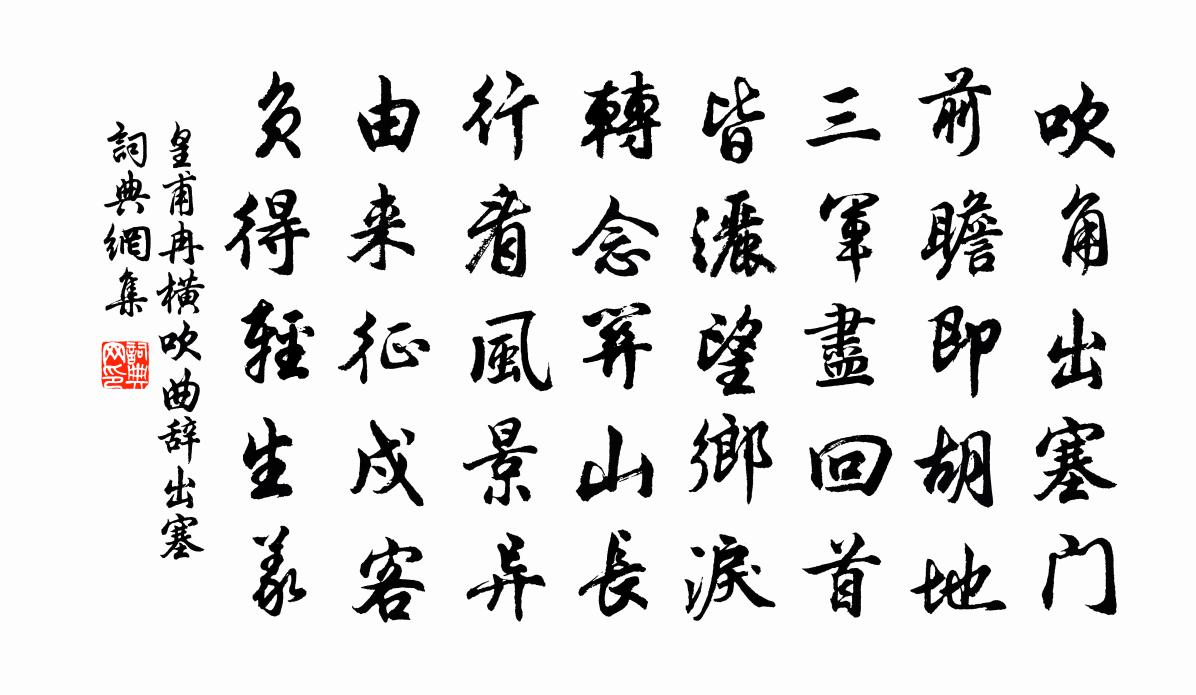 吹角出塞门
前瞻即胡地
三軍盡回首
皆灑望鄉淚
轉念關山長
行看風景异
由来征戍客
负得輕生義
皇甫冉横吹曲辞出塞
詞典網集
詞典网印